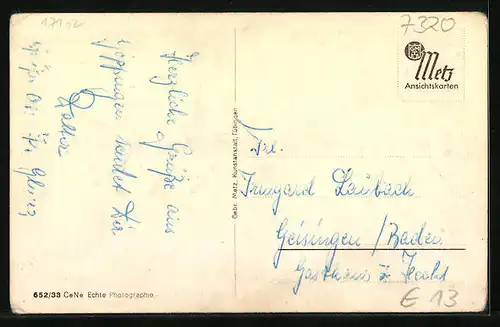 171-2
Herzliche Grüße aus
Göppingen sendet Dir
Lothar
7320
Metz
Ansichtskarten
Gebr. Metz, Kunstanstalt, Tübingen
Frl.
Irmgard Laubach
Geisingen / Baden
Gasthaus z Hecht
E 13
652/33 CeNe Echte Photographie